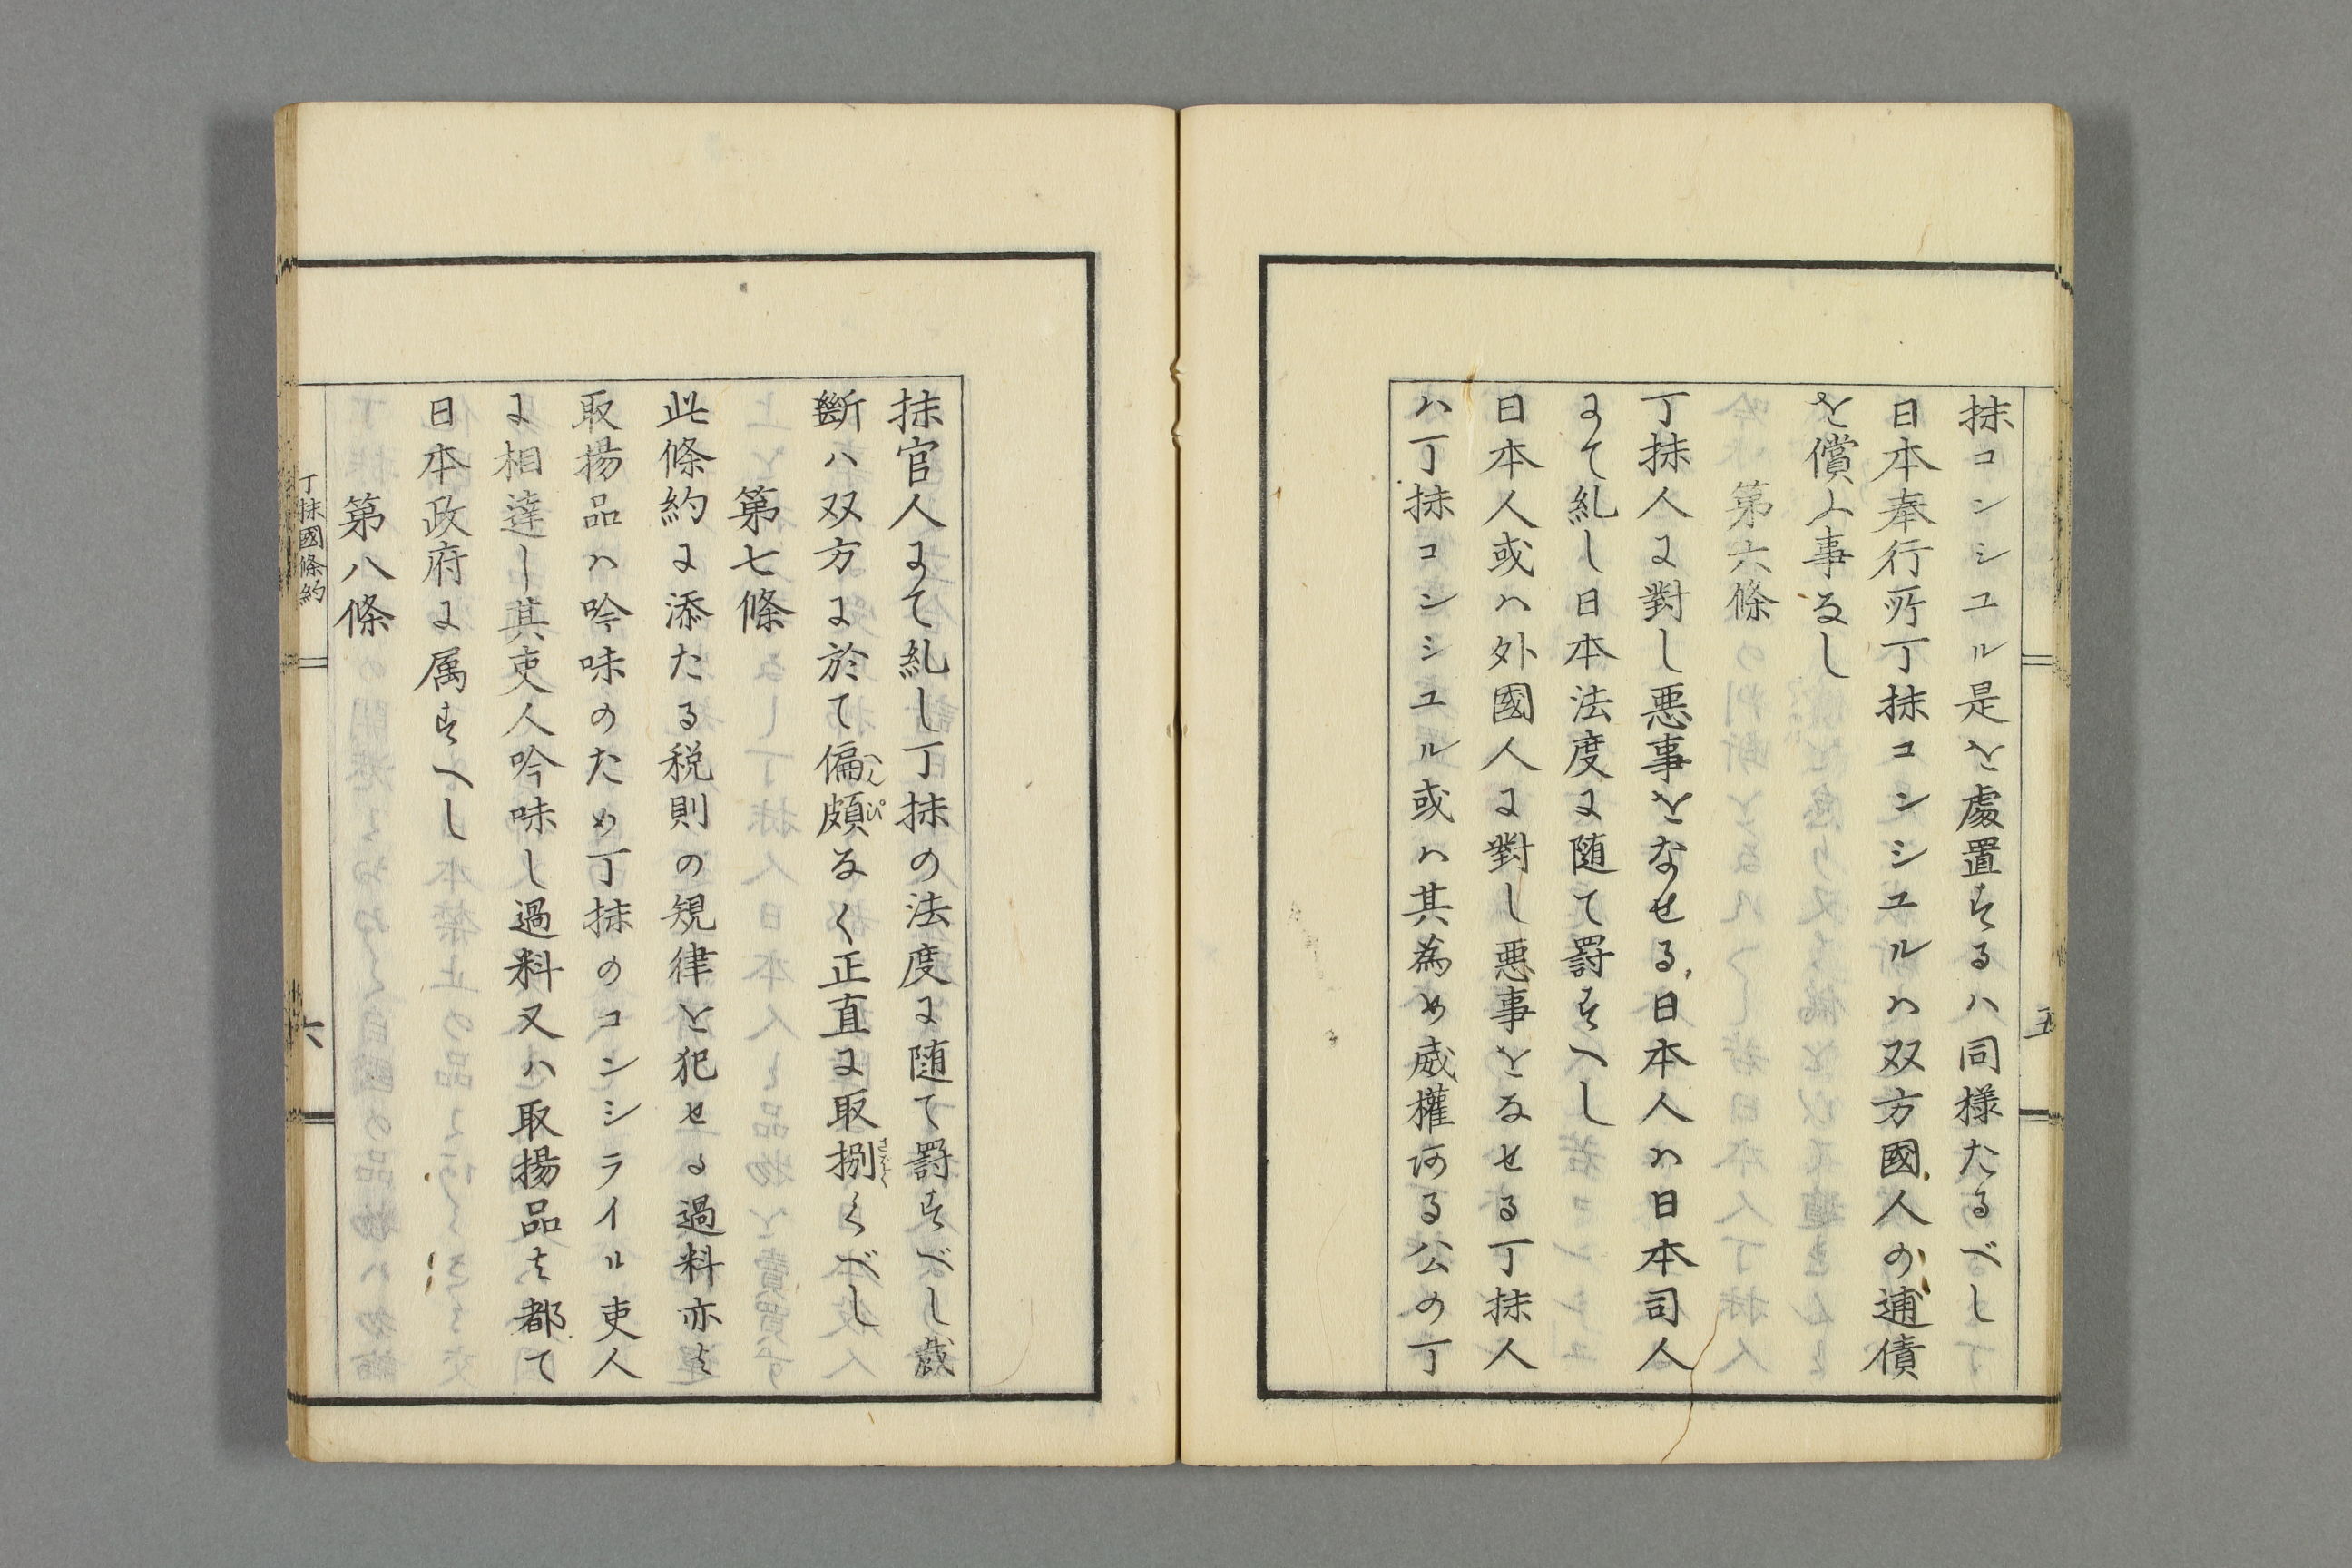 五
抹コンシユル是を處置するハ同様たるべし
日本奉行所丁抹コンシユルハ双方國人の逋債
を償ふ事なし
第六條
丁抹人に對し悪事をなせる日本人ハ日本司人
にて糺し日本法度に随て罸すへし
日本人或ハ外國人に對し悪事をなせる丁抹人
ハ丁抹コンシユル或ハ其為め威權ある公の丁
抹官人にて糺し丁抹の法度に随て罸すべし裁
斷ハ双方に於て偏頗なく正直に取捌くべし
へんぱ
さばく
第七條
此條約に添たる税則の規律を犯せる過料亦は
取揚品ハ吟味のため丁抹のコンシライル吏人
に相達し其吏人吟味し過料又ハ取揚品は都て
日本政府に属すへし
第八條
丁抹國條約
六